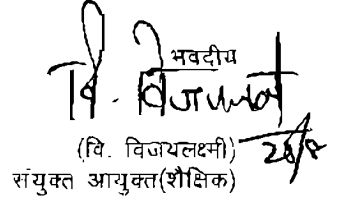 भवदीय
वि. विजयलक्ष्मी
28/8
(वि. विजयलक्ष्मी)
संयुक्त आयुक्त(शैक्षिक)